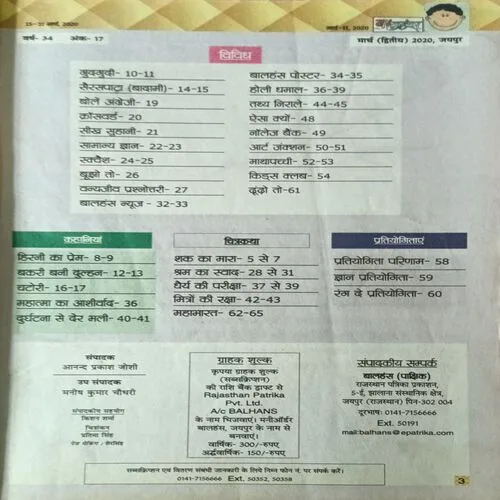 15-31 मार्च, 2020
मार्च-II, 2020
वर्ष- 34 अंक- 17
मार्च (द्वितीय) 2020, जयपुर
विविध
गुदगुदी- 10-11
सैरसपाटा (बादामी)- 14-15
बोलें अंग्रेजी- 19
क्रॉसवर्ड- 20
सीख सुहानी- 21
सामान्य ज्ञान- 22-23
स्क्वैश- 24-25
बूझो तो- 26
वन्यजीव प्रश्नोत्तरी- 27
बालहंस न्यूज- 32-33
बालहंस पोस्टर- 34-35
होली धमाल- 36-39
तथ्य निराले- 44-45
ऐसा क्यों- 48
नॉलेज बैंक- 49
आर्ट जंक्शन- 50-51
माथापच्ची- 52-53
किड्स क्लब- 54
ढूंढ़ो तो-61
कहानियां
हिरनी का प्रेम- 8-9
बकरी बनी दुल्हन- 12-13
चटोरी- 16-17
महात्मा का आशीर्वाद- 36
दुर्घटना से देर भली- 40-41
चित्रकथा
शक का मारा- 5 से 7
श्रम का स्वाद- 28 से 31
धैर्य की परीक्षा- 37 से 39
मित्रों की रक्षा- 42-43
महाभारत- 62-65
प्रतियोगिताएं
प्रतियोगिता परिणाम- 58
ज्ञान प्रतियोगिता- 59
रंग दे प्रतियोगिता- 60
संपादक
आनन्द प्रकाश जोशी
उप संपादक
मनीष कुमार चौधरी
संपादकीय सहयोग
किशन शर्मा
चित्रांकन
प्रतिमा सिंह
पेज मेकिंग : शेरसिंह
ग्राहक शुल्क
कृपया ग्राहक शुल्क
(सब्सक्रिप्शन)
की राशि बैंक ड्राफ्ट से
Rajasthan Patrika
Pvt. Ltd.
A/c BALHANS
के नाम भिजवाएं। मनीऑर्डर
बालहंस, जयपुर के नाम से
बनवाएं।
वार्षिक- 300/-रुपए
अर्द्धवार्षिक- 150/-रुपए
संपादकीय सम्पर्क
बालहंस (पाक्षिक)
राजस्थान पत्रिका प्रकाशन,
5-ई, झालाना संस्थानिक क्षेत्र,
जयपुर (राजस्थान) पिन-302 004
दूरभाष: 0141-7156666
Ext. 50191
mail:balhans@epatrika.com
सब्सक्रिप्शन एवं वितरण संबंधी जानकारी के लिये निम्न फोन नं. पर संपर्क करें।
0141-7156666 Ext, 50352, 50358
3